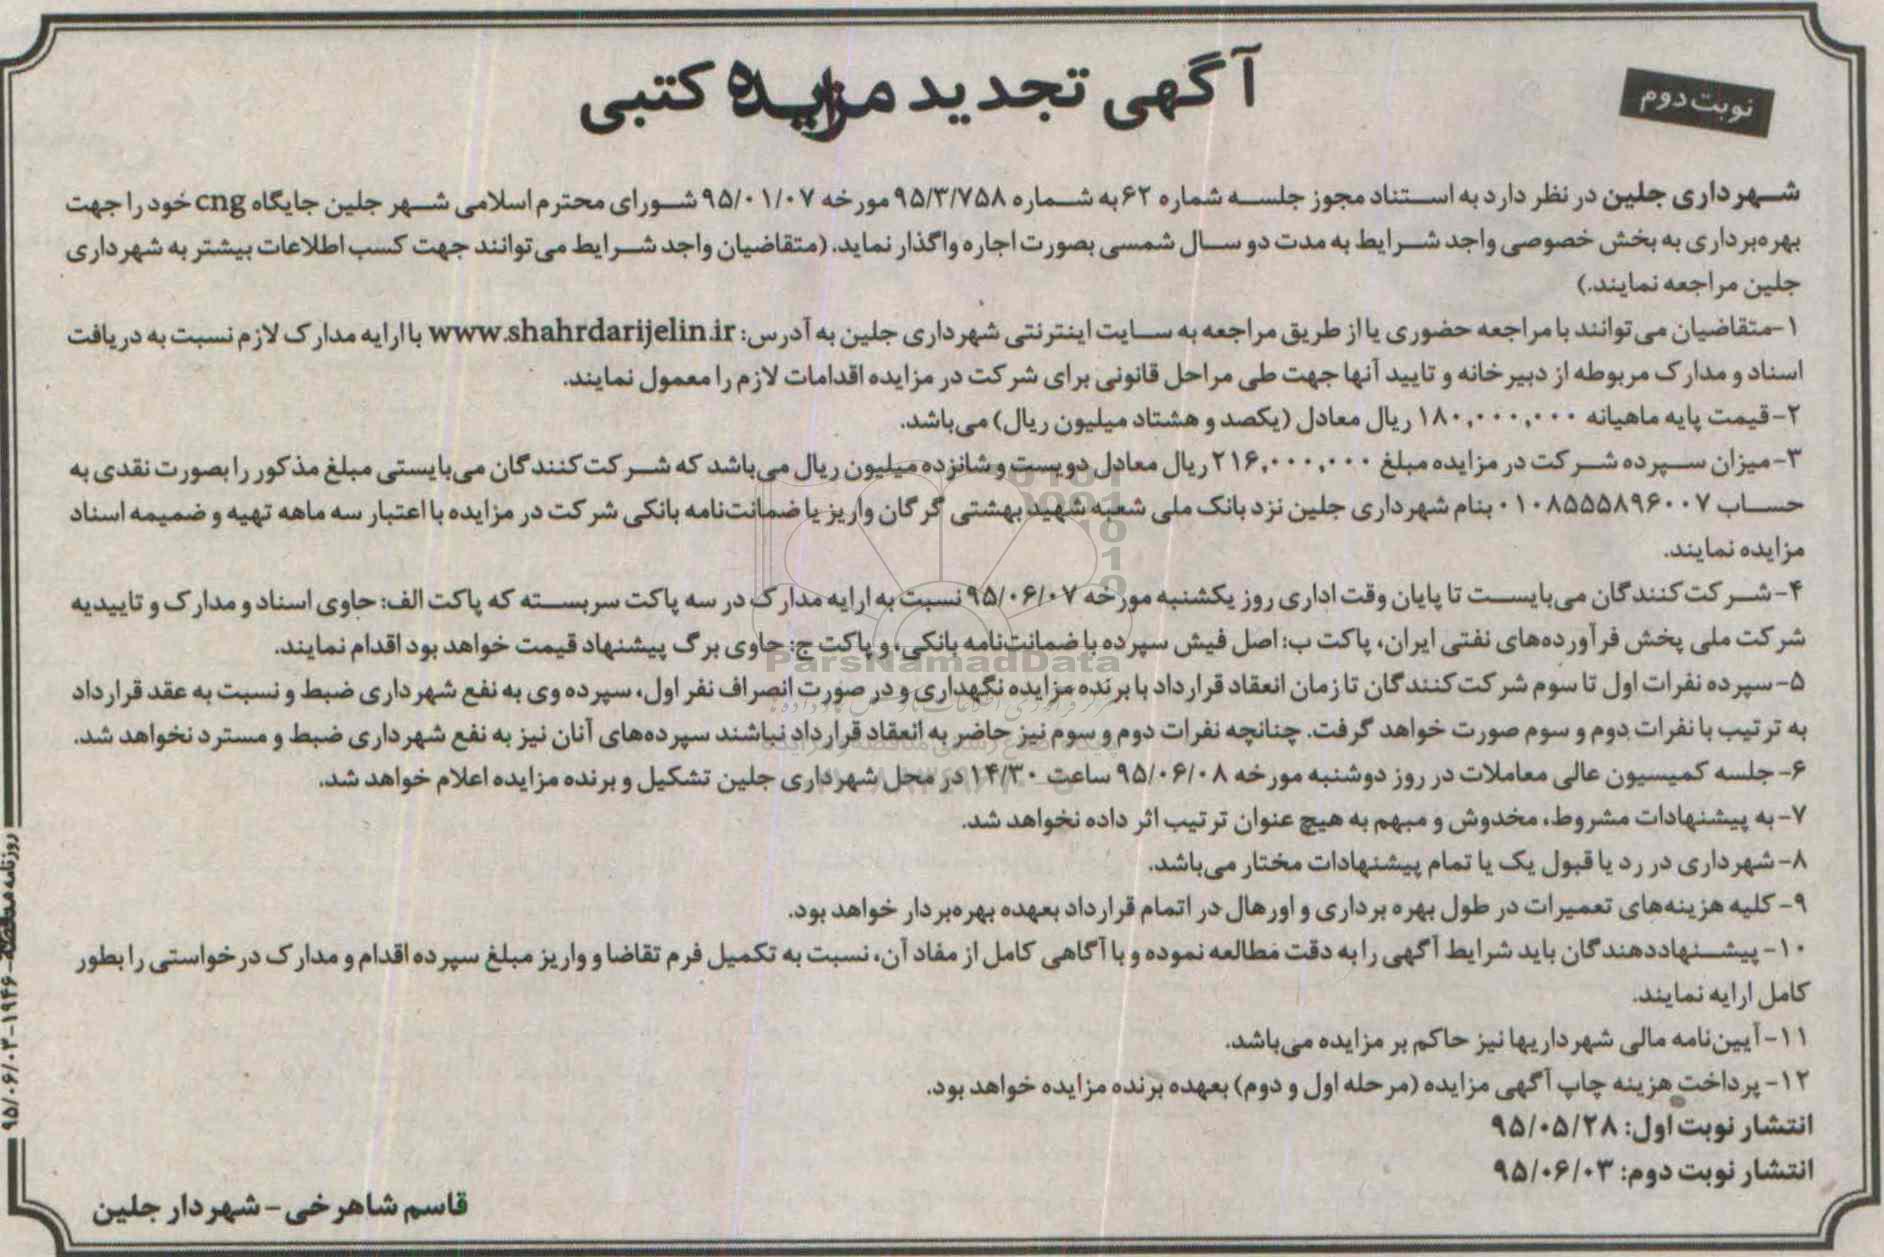 نوبت دوم
آگهی تجدید مزایده کتبی
شهرداری جلین در نظر دارد به استناد مجوز جلسه شماره ۶۲ به شماره ۹۵/۳/۷۵۸ مورخه ۹۵/۰۱/۰۷ شورای محترم اسلامی شهر جلین جایگاه cng خود را جهت
بهره‌برداری به بخش خصوصی واجد شرایط به مدت دو سال شمسی بصورت اجاره واگذار نماید. (متقاضیان واجد شرایط می‌توانند جهت کسب اطلاعات بیشتر به شهرداری
جلین مراجعه نمایند.)
۱-متقاضیان می‌توانند با مراجعه حضوری یا از طریق مراجعه به سایت اینترنتی شهرداری جلین به آدرس: www.shahrdarijelin.ir با ارایه مدارک لازم نسبت به دریافت
اسناد و مدارک مربوطه از دبیرخانه و تایید آنها جهت طی مراحل قانونی برای شرکت در مزایده اقدامات لازم را معمول نمایند.
۲-قیمت پایه ماهیانه ۱۸۰,۰۰۰,۰۰۰ ریال معادل (یکصد و هشتاد میلیون ریال) می‌باشد.
۳-میزان سپرده شرکت در مزایده مبلغ ۲۱۶,۰۰۰,۰۰۰ ریال معادل دویست و شانزده میلیون ریال می‌باشد که شرکت‌کنندگان می‌بایستی مبلغ مذکور را بصورت نقدی به
حساب ۰۱۰۸۵۵۵۸۹۶۰۰۷ بنام شهرداری جلین نزد بانک ملی شعبه شهید بهشتی گرگان واریز یا ضمانت‌نامه بانکی شرکت در مزایده با اعتبار سه ماهه تهیه و ضمیمه اسناد
مزایده نمایند.
۴-شرکت‌کنندگان می‌بایست تا پایان وقت اداری روز یکشنبه مورخه ۹۵/۰۶/۰۷ نسبت به ارایه مدارک در سه پاکت سربسته که پاکت الف: حاوی اسناد و مدارک و تاییدیه
شرکت ملی پخش فرآورده‌های نفتی ایران، پاکت ب: اصل فیش سپرده یا ضمانت‌نامه بانکی، و پاکت ج: حاوی برگ پیشنهاد قیمت خواهد بود اقدام نمایند.
۵-سپرده نفرات اول تا سوم شرکت‌کنندگان تا زمان انعقاد قرارداد با برنده مزایده نگهداری و در صورت انصراف نفر اول، سپرده وی به نفع شهرداری ضبط و نسبت به عقد قرارداد
به ترتیب با نفرات دوم و سوم صورت خواهد گرفت. چنانچه نفرات دوم و سوم نیز حاضر به انعقاد قرارداد نباشند سپرده‌های آنان نیز به نفع شهرداری ضبط و مسترد نخواهد شد.
۶-جلسه کمیسیون عالی معاملات در روز دوشنبه مورخه ۹۵/۰۶/۰۸ ساعت ۱۴/۳۰ در محل شهرداری جلین تشکیل و برنده مزایده اعلام خواهد شد.
۷-به پیشنهادات مشروط، مخدوش و مبهم به هیچ عنوان ترتیب اثر داده نخواهد شد.
۸-شهرداری در رد یا قبول یک یا تمام پیشنهادات مختار می‌باشد.
۹-کلیه هزینه‌های تعمیرات در طول بهره برداری و اورهال در اتمام قرارداد بعهده بهره‌بردار خواهد بود.
۱۰-پیشنهاددهندگان باید شرایط آگهی را به دقت مطالعه نموده و با آگاهی کامل از مفاد آن، نسبت به تکمیل فرم تقاضا و واریز مبلغ سپرده اقدام و مدارک درخواستی را بطور
کامل ارایه نمایند.
۱۱-آیین‌نامه مالی شهرداریها نیز حاکم بر مزایده می‌باشد.
۱۲-پرداخت هزینه چاپ آگهی مزایده (مرحله اول و دوم) بعهده برنده مزایده خواهد بود.
انتشار نوبت اول: ۹۵/۰۵/۲۸
انتشار نوبت دوم: ۹۵/۰۶/۰۳
قاسم شاهرخی-شهردار جلین
روزنامه مناقصه-۱۹۴۶-۹۵/۰۶/۰۳
ParsNamadData